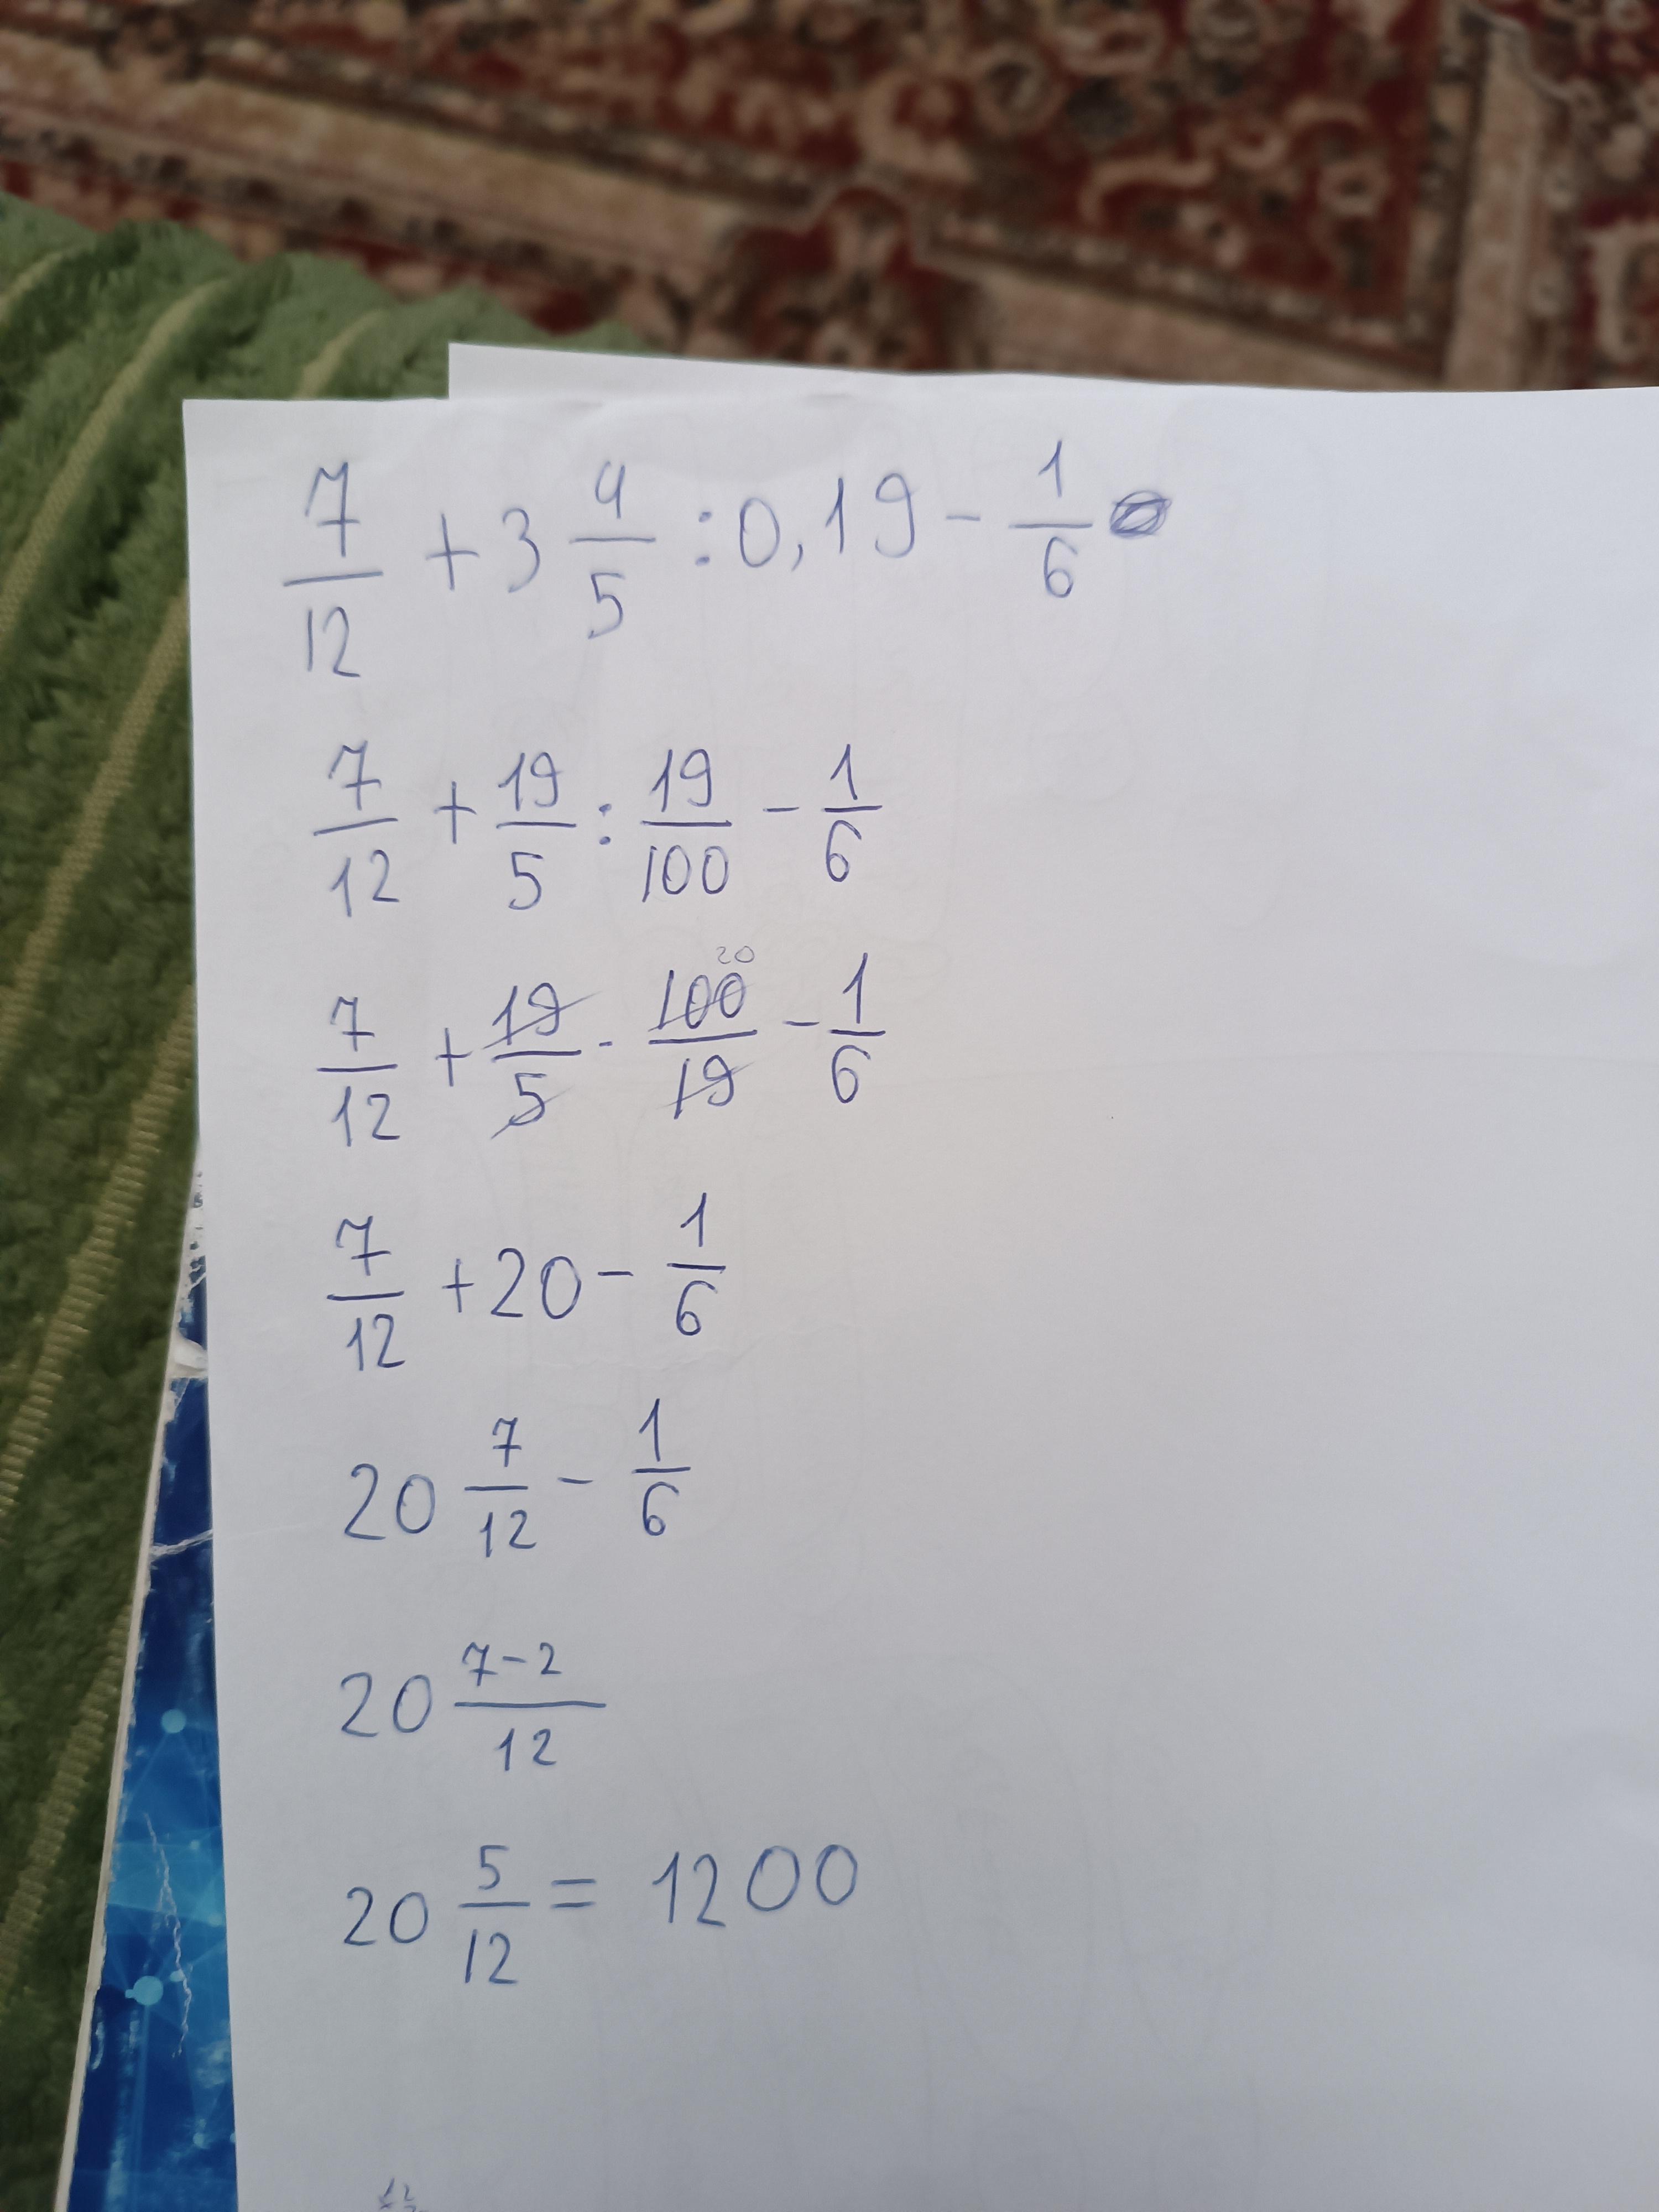 7/12 + 3 4/5 : 0,19 - 1/6
7/12 + 19/5 : 19/100 - 1/6
7/12 + 19/5 · 100/19 - 1/6 20
7/12 + 20 - 1/6
20 7/12 - 1/6
20 7-2/12
20 5/12 = 1200